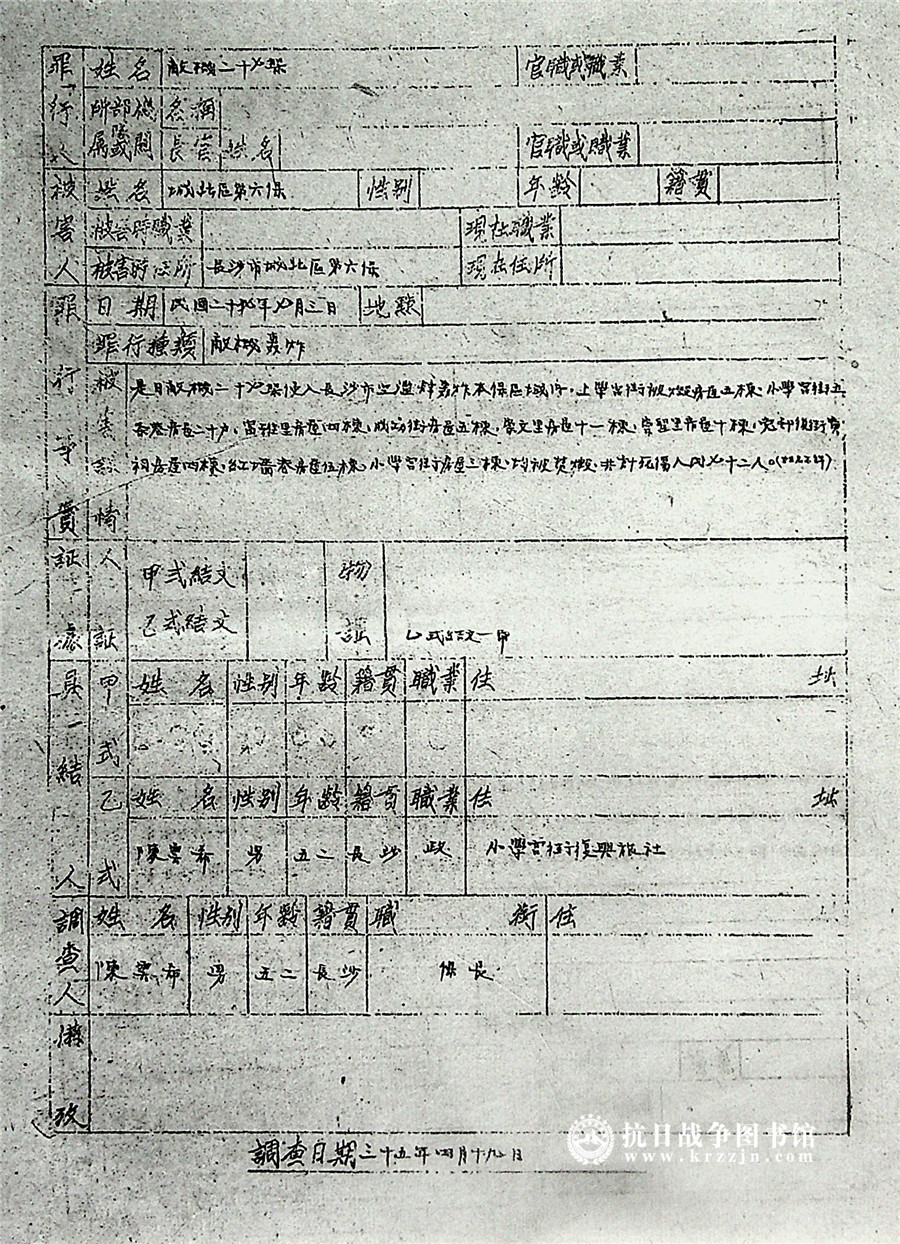 罪行人 姓名 敵機二十七架 官職或職業
所部機屬隊關 名稱
長官姓名 官職或職業
被害人 姓名 城北區第六保 性别 年齡 籍貫
被害時職業 現在職業
被害時住所 長沙市城北區第六保 現在住所
罪行事實 日期 民國二十 年 月三日 地點
罪行種類 敵機轟炸
被害詳情 是日敵機二十七架侵入長沙市 轟炸本保區域內,上學宮街被燬房屋五棟,小學宮街五
巷房屋二十戶,富雅里房屋四棟,成功街房屋五棟,崇文里房屋十一棟,崇聖里房屋十棟, 後街
祠房屋四棟,紅牆巷房屋伍棟,小學宮街房屋三棟,均被焚燬,共計死傷人口七十二人。
証據 人証 甲式結文 物証
乙式結文 乙式結文一 
具結人 甲式 姓名 性别 年齡 籍貫 職業 住址
乙式 姓名 性别 年齡 籍貫 職業 住址
陳雲希 男 五二 長沙 政 小學宮街復興旅社
調查人 姓名 性别 年齡 籍貫 職銜 住
陳雲希 男 五二 長沙 保長
備攷
調查日期三十五年四月十九日
抗日战争图书馆
www.krzzjn.com